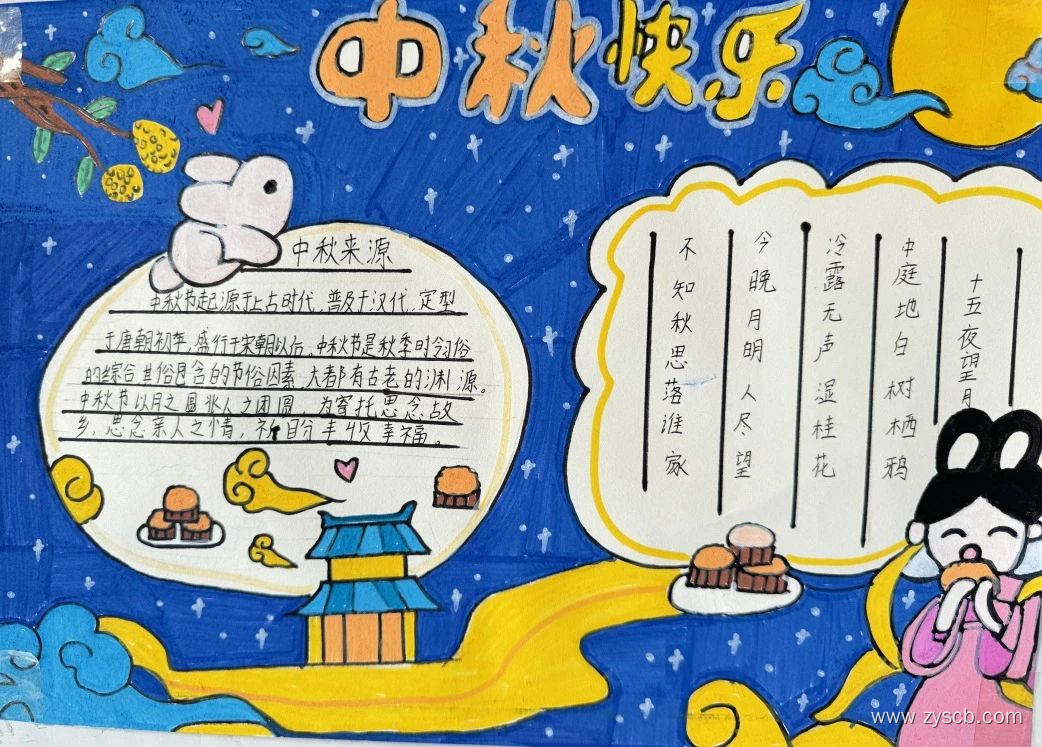 中秋快乐
中秋来源
中秋节起源于上古时代,普及于汉代,定型
于唐朝初年,盛行于宋朝以后,中秋节是秋季时令习俗
的综合,其俗包含的节俗因素,大都有古老的渊源。
中秋节以月之圆兆人之团圆,为寄托思念故
乡,思念亲人之情,祈盼丰收幸福。
十五夜望月
中庭地白树栖鸦
冷露无声湿桂花
今晚月明人尽望
不知秋思落谁家
www.zyscb.com